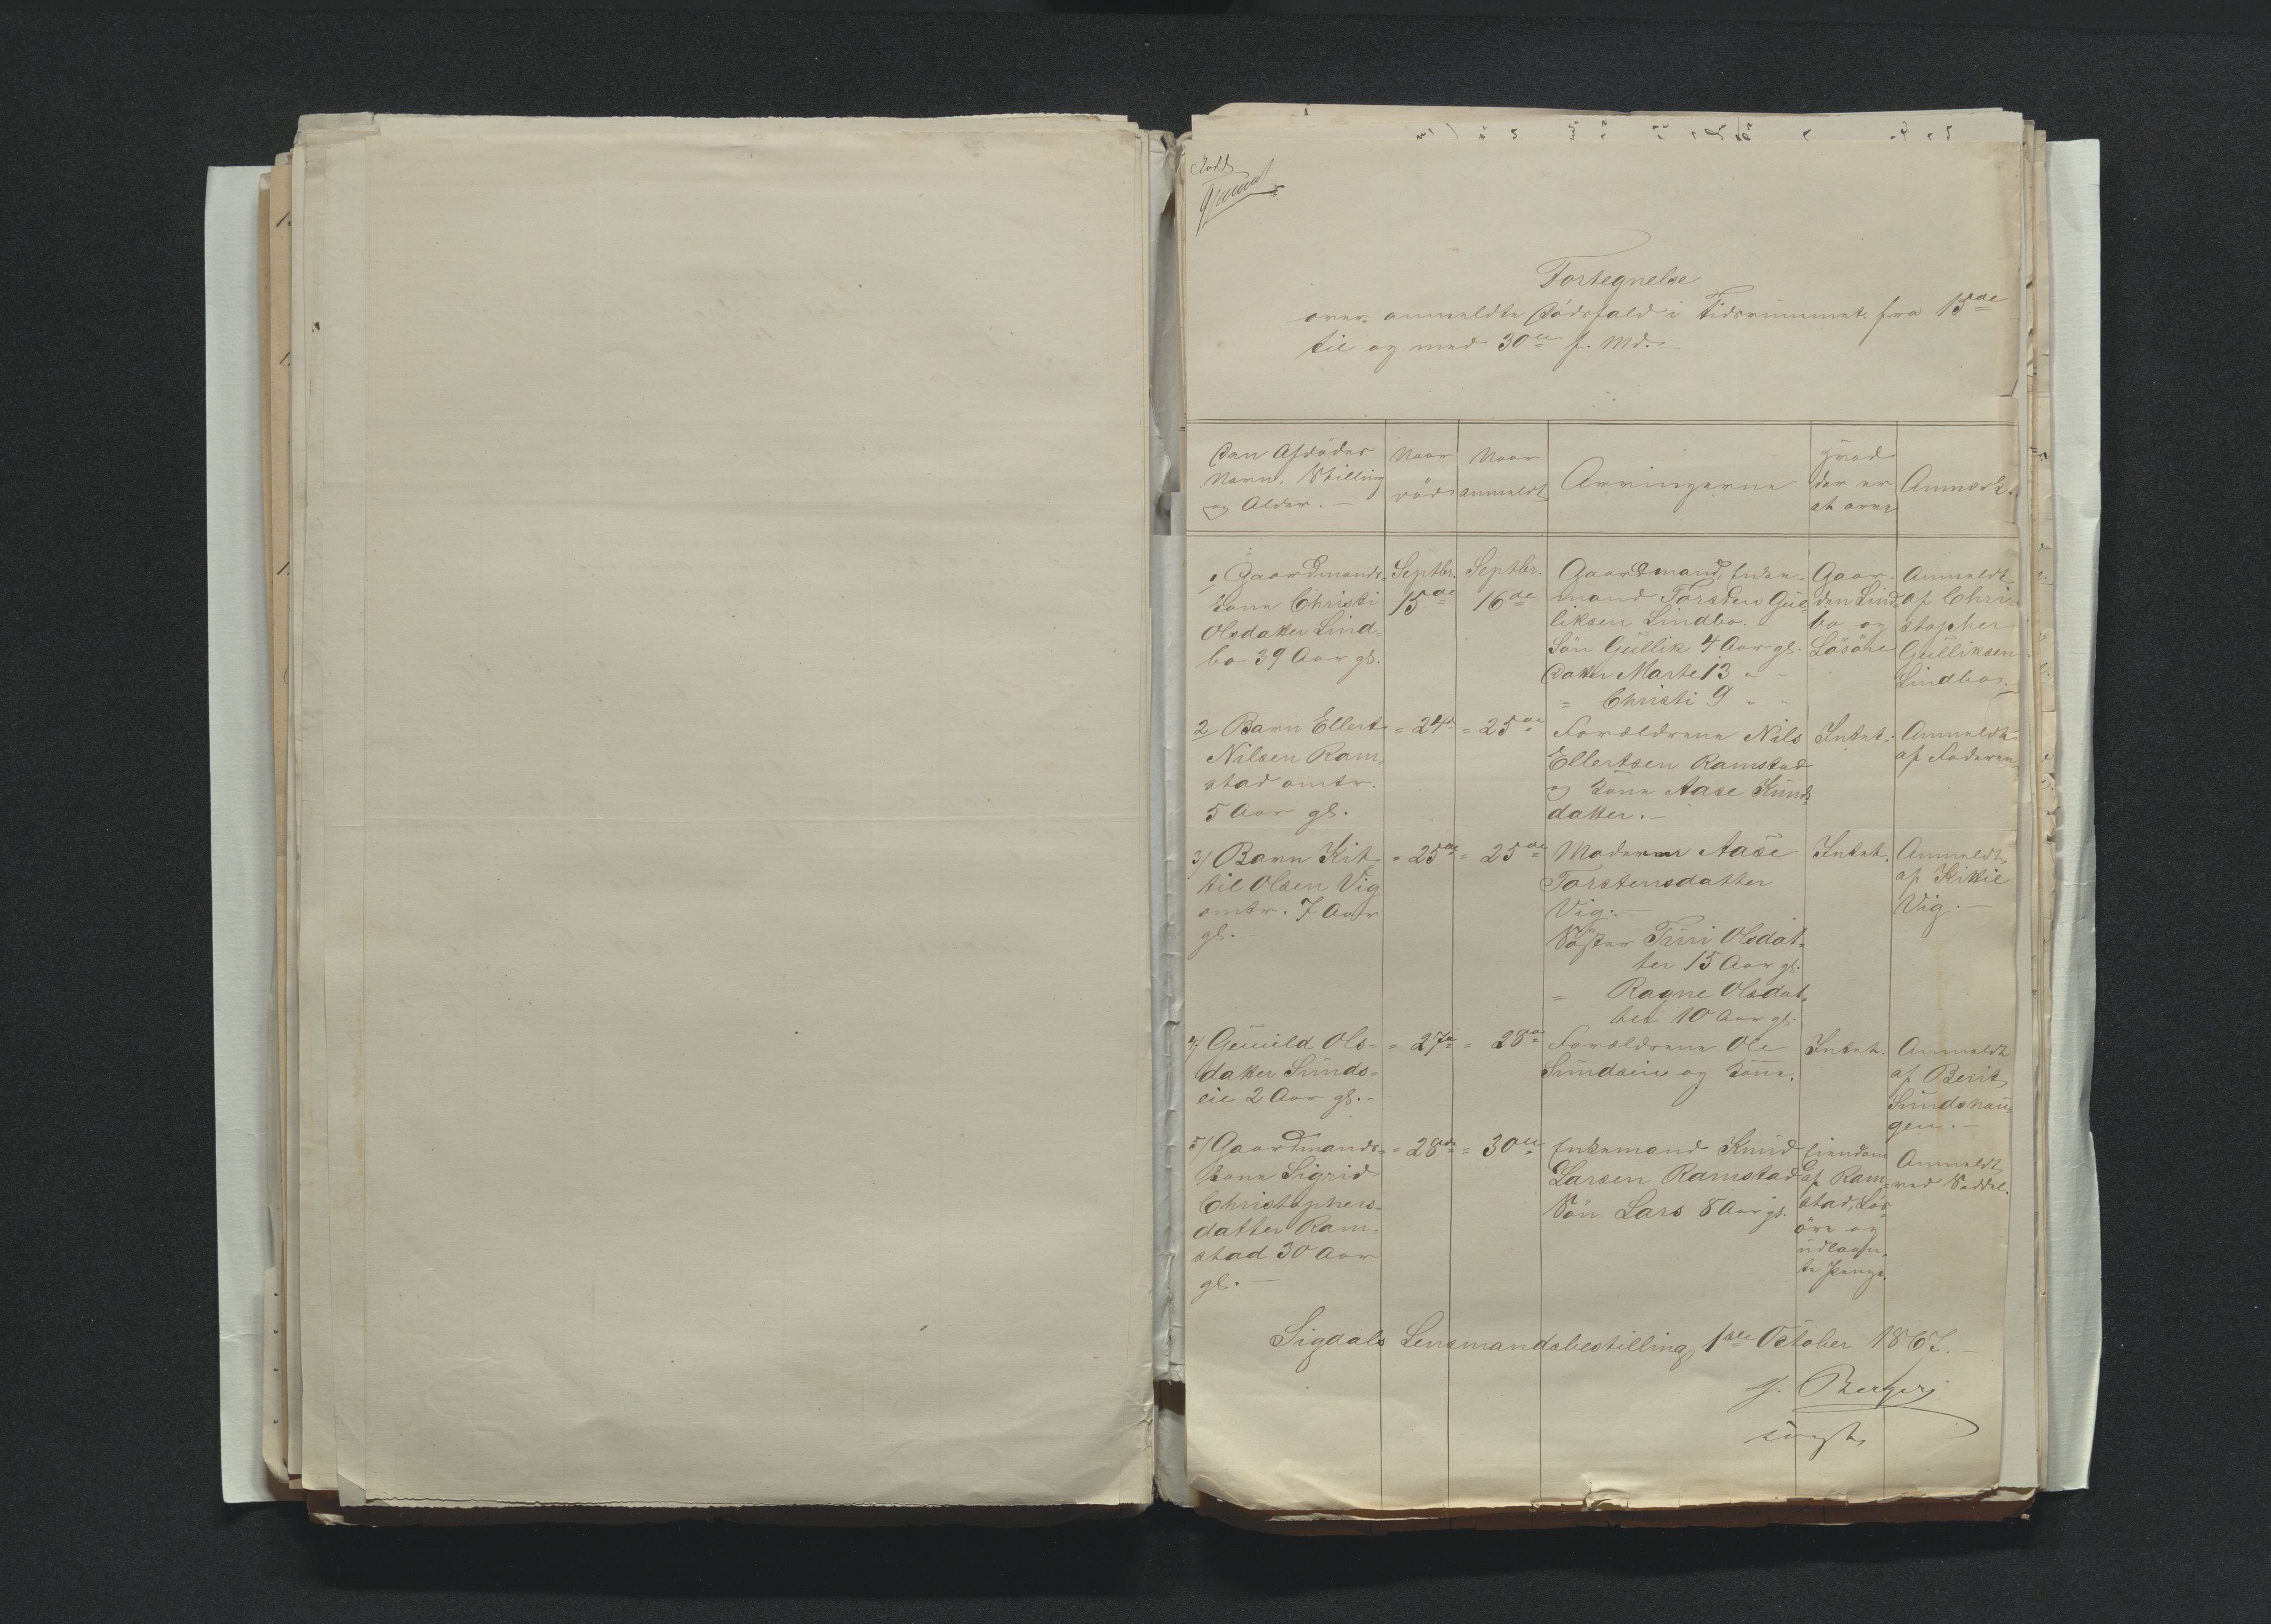 Fortegnelse
over anmeldte Dödsfald i Tidsrummet fra 15de
til og med 30te f. Md.
Den Afdödes
Navn, Stilling
og Alder. —
Naar
död
Naar
anmeldt
Arvingerne
Hvad
der er
at arve
Anmærk.
1, Gaardmands-
kone Christi
Olsdatter Lind-
bo 39 Aar gl.
Septbr.
15de
Septbr.
16de
Gaardmand, Enke-
mand Torsten Gul-
liksen Lindbo.
Sön Gullik 4 Aar gl.
Datter Marte 13 " -
= Christi 9 " -
Gaar-
den Lind-
bo og
Lösöre
Anmeldt
af Chri-
stopher
Gulliksen
Lindbo. —
2 Barn Ellert
Nilsen Ram-
stad omtr.
5 Aar gl.
= 24de
= 25de
Forældrene Nils
Ellertsen Ramstad
og Kone Aase Knuds-
datter. —
Intet.
Anmeldt
af Faderen
3/ Barn Kit-
til Olsen Vig
omtr. 7 Aar
gl. —
= 25de
= 25de
Moderen Aase
Torstensdatter
Vig. —
Söster Turi Olsdat-
ter 15 Aar gl.
= Ragne Olsdat-
ter 10 Aar gl.
Intet.
Anmeldt
af Kittil
Vig. —
4/ Gunild Ols-
datter Sunds-
eie 2 Aar gl. -
= 27de
= 28de
Forældrene Ole
Sundseie og Kone.
Intet.
Anmeldt
af Berit
Sundshau-
gen. —
5/ Gaardmands-
kone Sigrid
Christophers-
datter Ram-
stad 30 Aar
gl. —
= 28de
= 30te
Enkemand Knud
Larsen Ramstad
Sön Lars 8 Aar gl.
Eiendom
af Ram-
stad, Lös-
öre og
udlaan-
te Penge.
Anmeldt
ved Seddel.
Sigdals Lensmandsbestilling 1ste October 1867. —
Berger